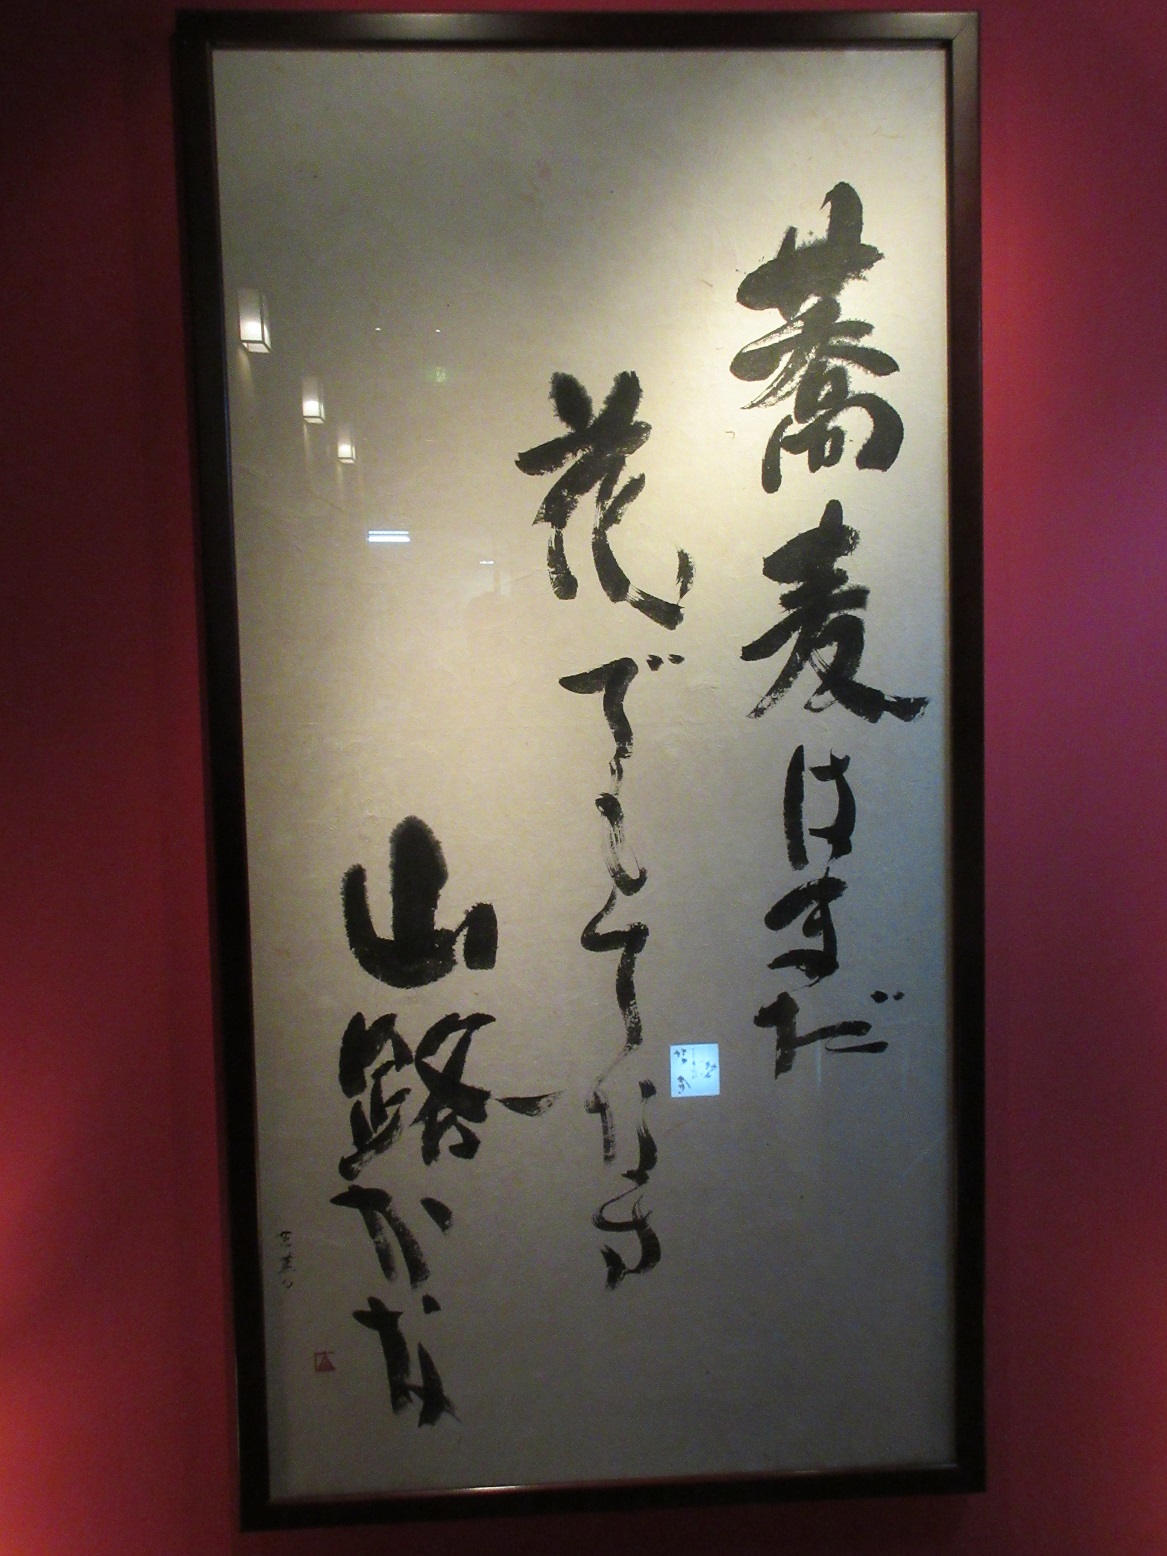 蕎麦はまだ
花でもてなす
山路かな